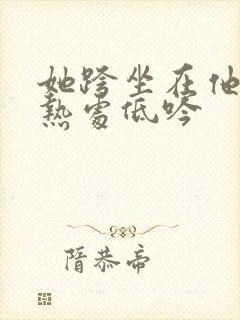 她跨坐在他
熱處低吟
隋恭帝